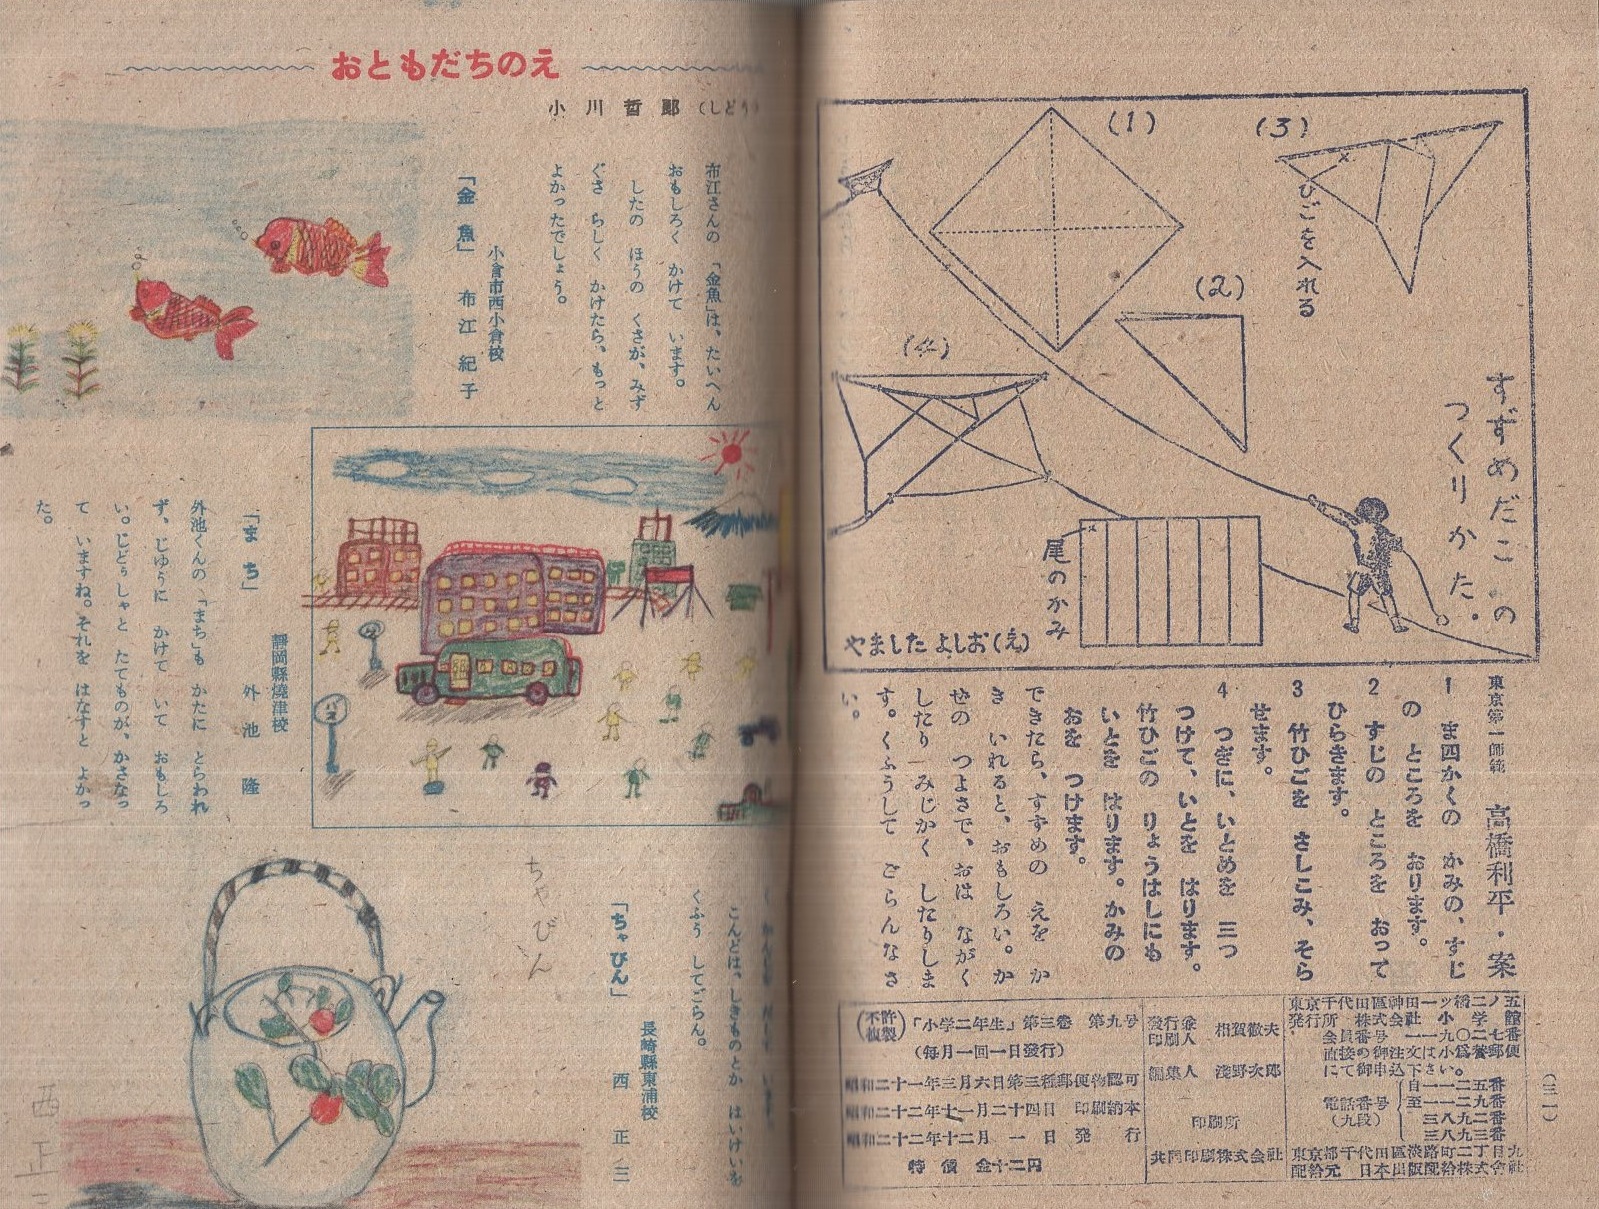 (1)
(2)
(3)
(4)
ひごを入れる
すずめだこの
つくりかた。
尾のかみ
やました よしお(え)
東京第一師範 高橋利平・案
1 ま四かくの かみの、すじ
の ところを おります。
2 すじの ところを おって
ひらきます。
3 竹ひごを さしこみ、そら
せます。
4 つぎに、いとめを 三つ
つけて、いとを はります。
竹ひごの りょうはしにも
いとを はります。かみの
おを つけます。
できたら、すずめの えを か
き いれると、おもしろい。か
ぜの つよさで、おは ながく
したり みじかく したりしま
す。くふうして ごらんなさ
い。
(三一)
東京千代田區神田一ツ橋二ノ五
発行所 株式会社 小学館
会員番号 一一九〇二七番
直接の御注文は小為替郵便
にて御申込下さい。
電話番号(九段)
自一一二五番
至一一二九番
三八九二番
三八九三番
東京都千代田區淡路町二丁目九
配給元 日本出版配給株式會社
發行兼印刷人 相賀徹夫
編集人 淺野次郎
印刷所
共同印刷株式会社
(不許複製)「小学二年生」第三巻 第九号
(毎月一回一日發行)
昭和二十一年三月六日第三種郵便物認可
昭和二十二年十一月二十四日 印刷納本
昭和二十二年十二月一日 発行
特價 金十二円
おともだちのえ
小川哲郎(しどう)
布江さんの 「金魚」は、たいへん
おもしろく かけて います。
したの ほうの くさが、みず
ぐさ らしく かけたら、もっと
よかったでしょう。
小倉市西小倉校
「金魚」 布江紀子
バス
靜岡縣燒津校
「まち」 外池隆
外池くんの 「まち」も かたに とらわれ
ず、じゆうに かけて いて おもしろ
い。じどうしゃと たてものが、かさなっ
て いますね。それを はなすと よかっ
た。
こんどは、しきものとか はいけいを
くふう してごらん。
長崎縣東浦校
「ちゃびん」 西正三
ちゃびん
西正三